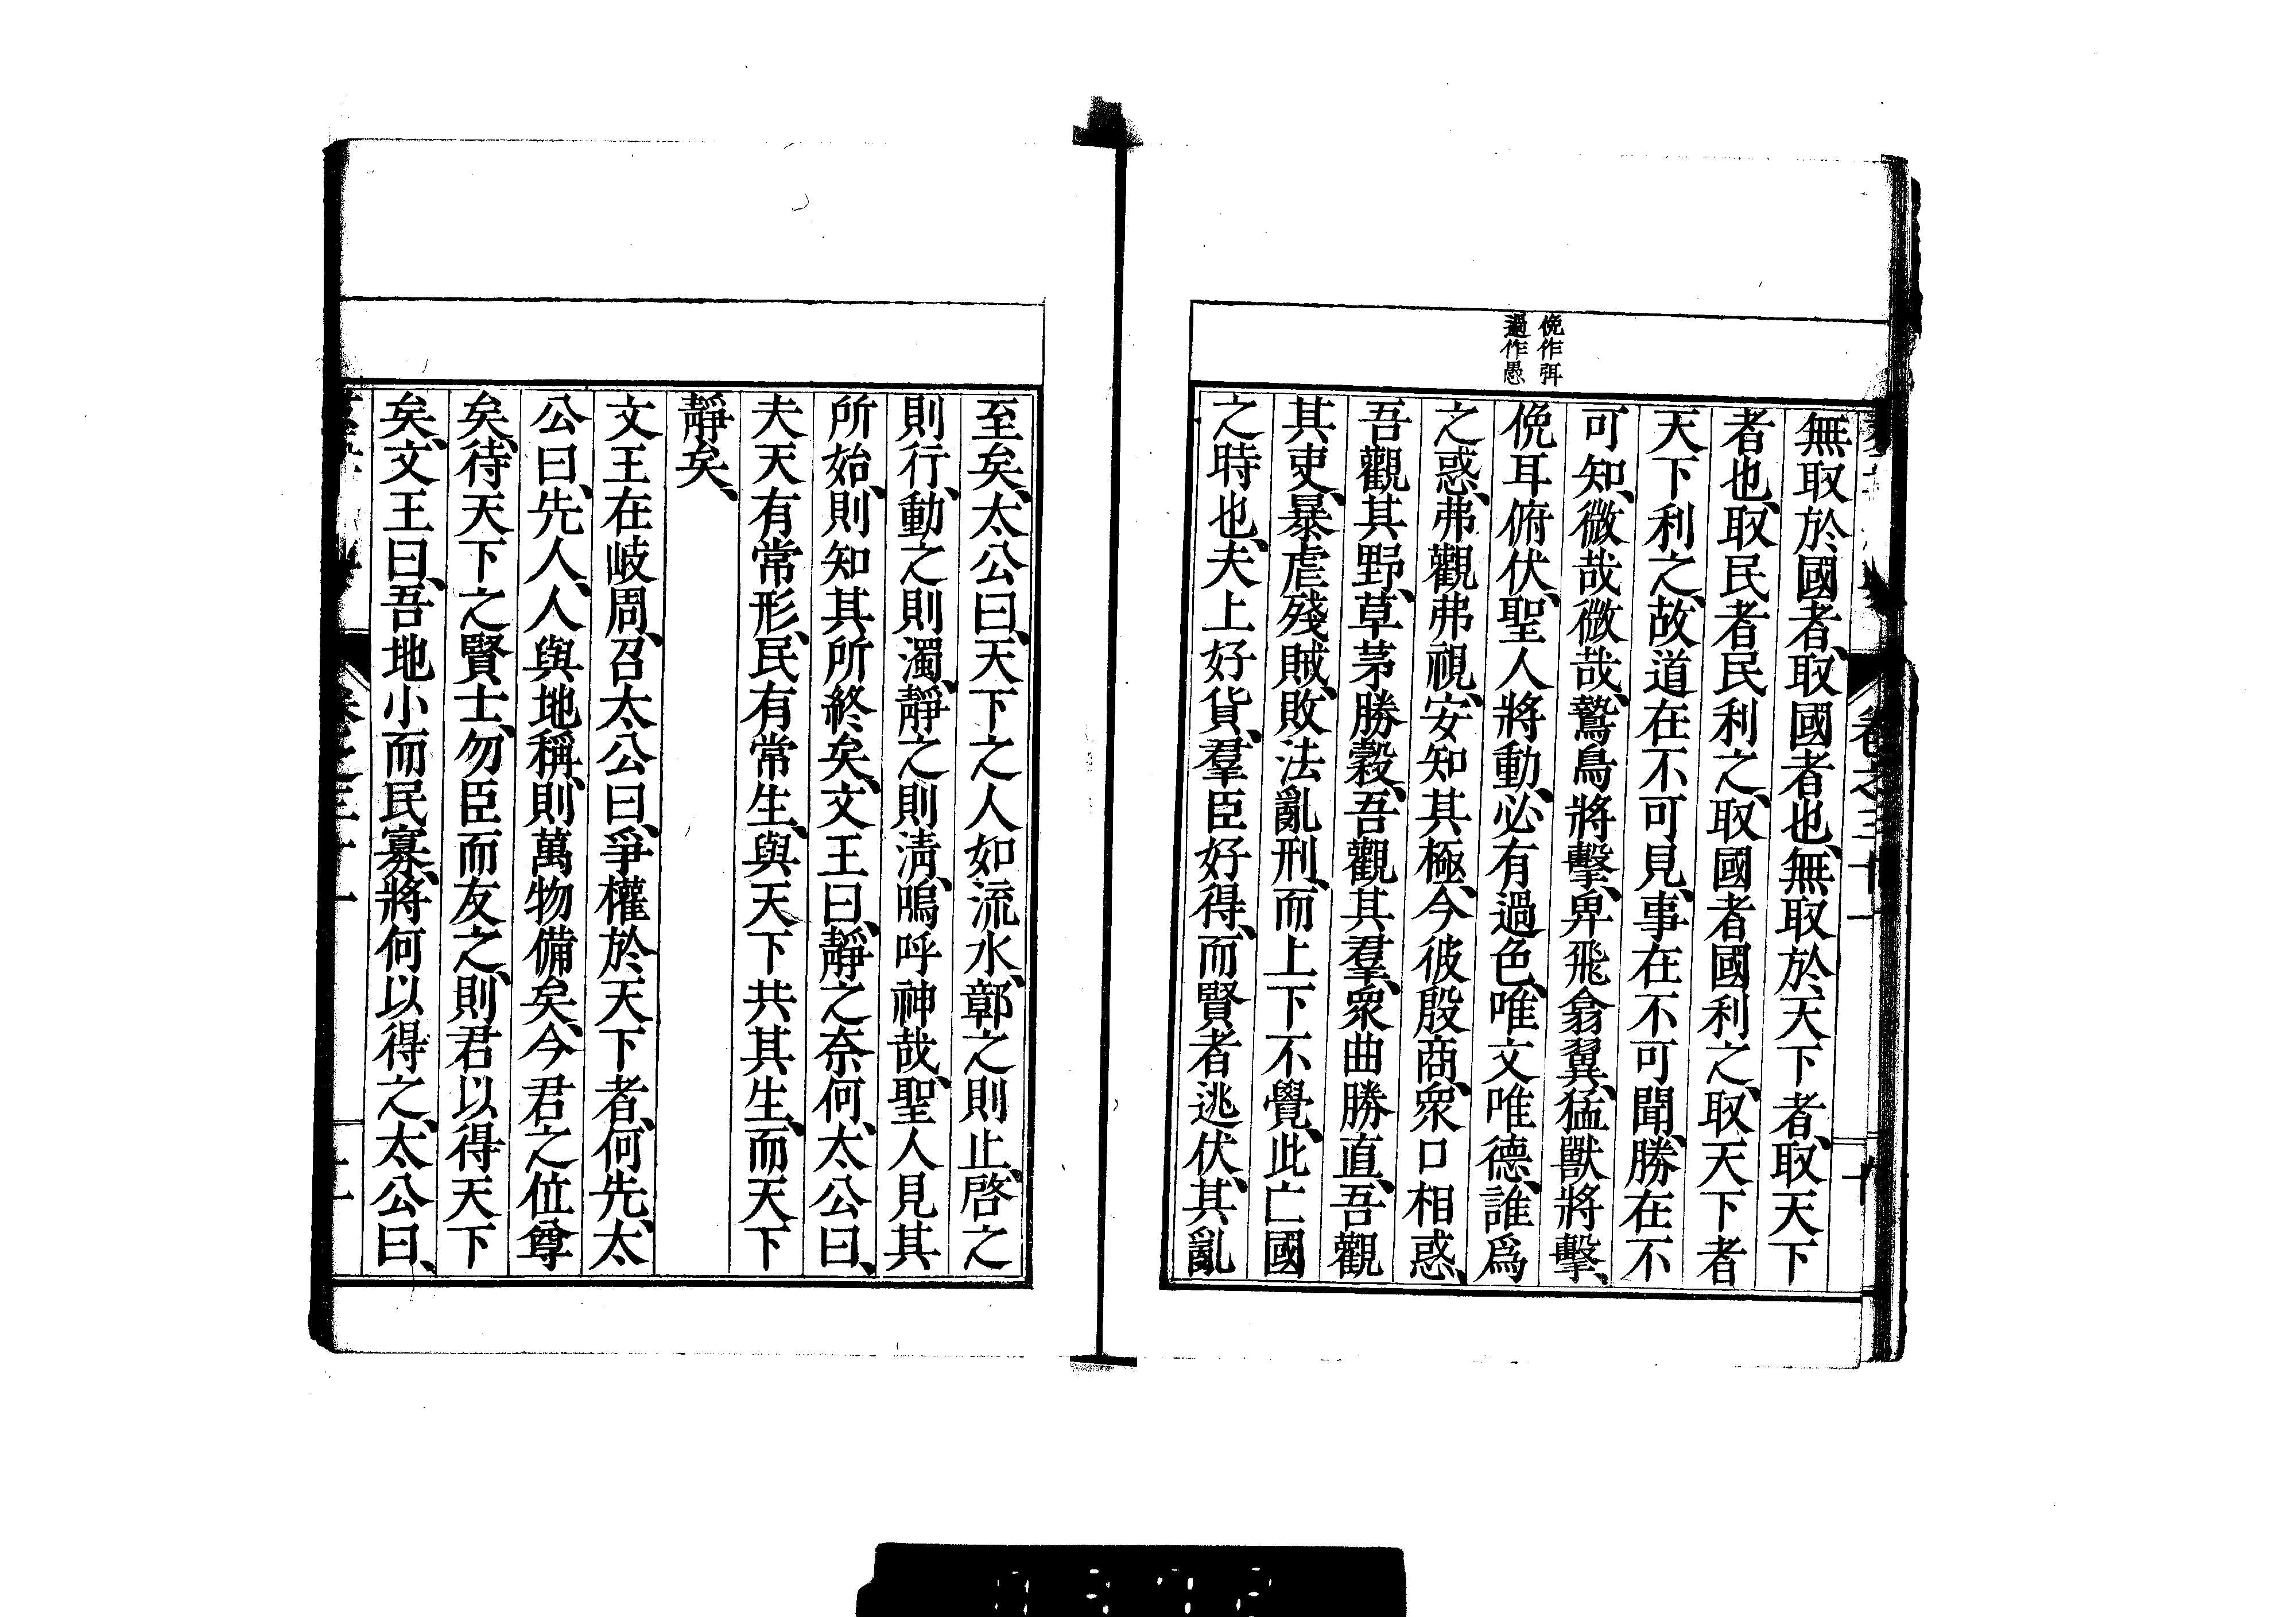 俛作弭
過作愚
無取於國者、取國者也、無取於天下者、取天下
者也、取民者民利之、取國者國利之、取天下者
天下利之、故道在不可見、事在不可聞、勝在不
可知、微哉微哉、鷙鳥將擊、卑飛翕翼、猛獸將擊、
俛耳俯伏、聖人將動、必有過色、唯文唯德、誰爲
之惑、弗觀弗視、安知其極、今彼殷商、衆口相惑、
吾觀其野、草茅勝穀、吾觀其羣、衆曲勝直、吾觀
其吏、暴虐殘賊、敗法亂刑、而上下不覺、此亡國
之時也、夫上好貨、羣臣好得、而賢者逃伏、其亂
至矣、太公曰、天下之人如流水、鄣之則止、啓之
則行、動之則濁、靜之則淸、嗚呼神哉、聖人見其
所始、則知其所終矣、文王曰、靜之奈何、太公曰、
夫天有常形、民有常生、與天下共其生、而天下
靜矣、
文王在岐周、召太公曰、爭權於天下者、何先、太
公曰、先人、人與地稱、則萬物備矣、今君之位尊
矣、待天下之賢士、勿臣而友之、則君以得天下
矣、文王曰、吾地小而民寡、將何以得之、太公曰、